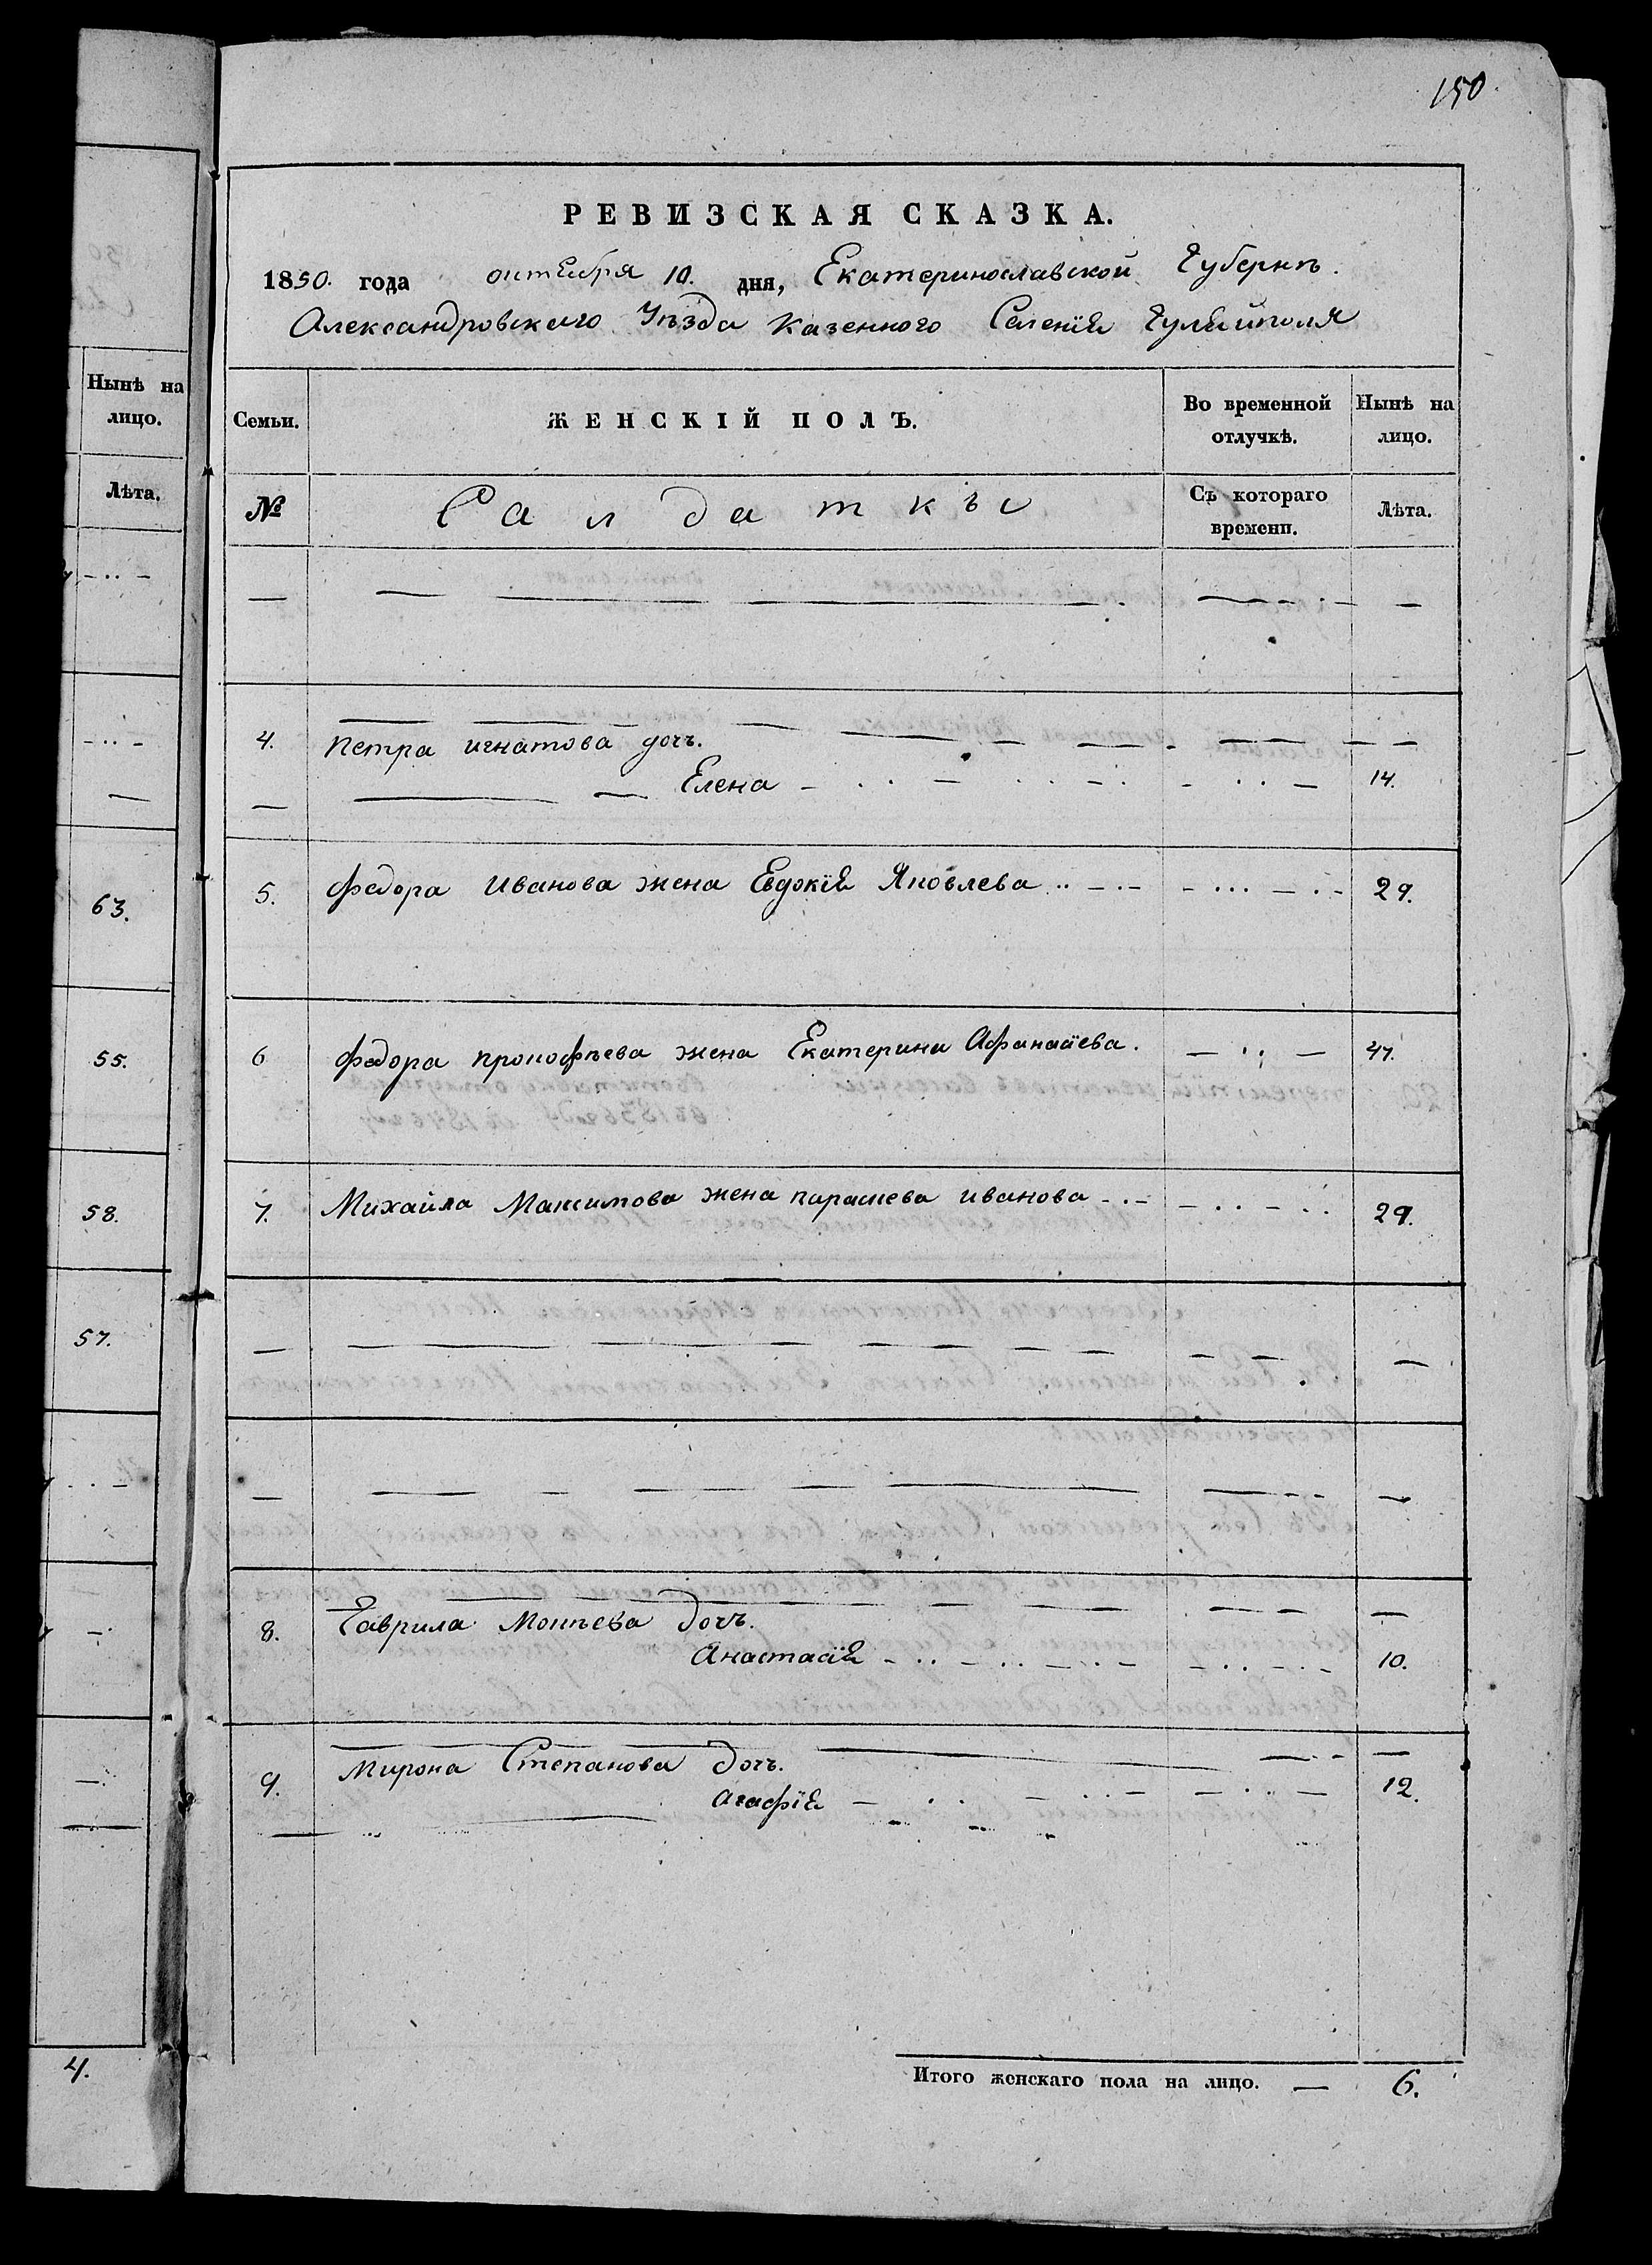 150.
РЕВИЗСКАЯ СКАЗКА.
1850. года октября 10. дня, Екатеринославской Губернѣ.
Александровского Уѣзда казенного Селенія Гуляйполя
Нынѣ на лицо.
Лѣта.
63.
55.
58.
57.
4.
Семьи. ЖЕНСКІЙ ПОЛЪ. Во временной отлучкѣ. Нынѣ на лицо.
№ Салдаткы Съ котораго времени. Лѣта.
4. Петра игнатова дочь.
Елена 14.
5. Федора Иванова жена Евдокія Яковлева 29.
6 Федора прокофьева жена Екатерина Афанасіева. 47.
7. Михайла Максимова жена парасиева иванова 29.
8. Гаврила Мокѣева дочь.
Анастасія 10.
9. Мирона Степанова дочь.
агафія 12.
Итого женскаго пола на лицо. — 6.